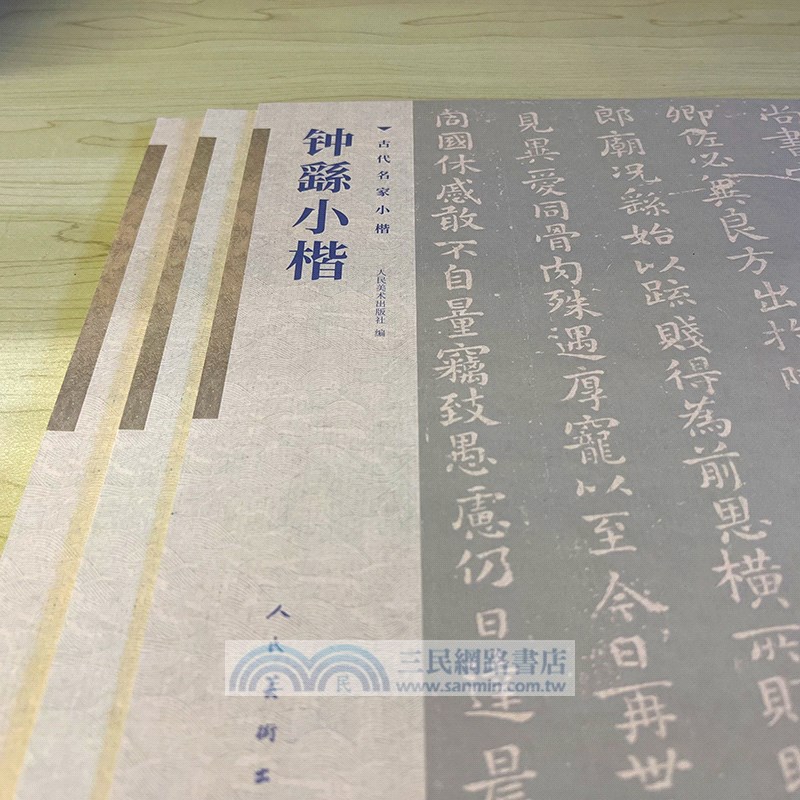 古代名家小楷
钟繇小楷
人民美术出版社 编
尚書
卿佐必冀良方出於
郎廟況繇始以疏賤得為前恩橫所
見異愛同骨肉殊遇厚寵以至今日再世
同國休慼敢不自量竊致愚慮仍日達晨
人民美術出
民 三民網路書店
www.sanmin.com.tw